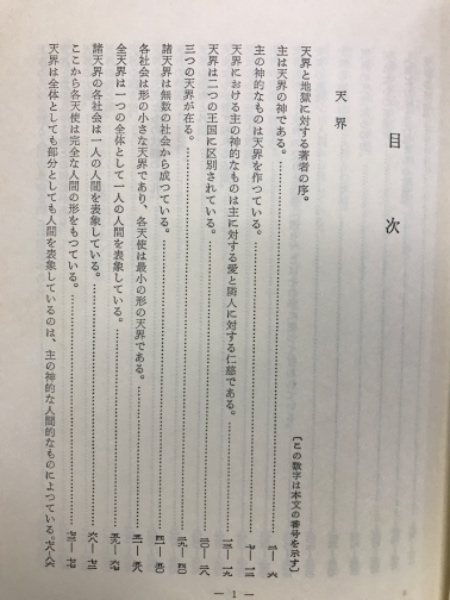 目次
天界
天界と地獄に対する著者の序。
〔この数字は本文の番号を示す〕
主は天界の神である。…………二―六
主の神的なものは天界を作つている。…………七―一二
天界における主の神的なものは主に対する愛と隣人に対する仁慈である。…………一三―一九
天界は二つの王国に区別されている。…………二〇―二八
三つの天界が在る。…………二九―四〇
諸天界は無数の社会から成つている。…………四一―五〇
各社会は形の小さな天界であり、各天使は最小の形の天界である。…………五一―五八
全天界は一つの全体として一人の人間を表象している。…………五九―六七
諸天界の各社会は一人の人間を表象している。…………六八―七二
ここから各天使は完全な人間の形をもつている。…………七三―七七
天界は全体としても部分としても人間を表象しているのは、主の神的な人間的なものによつている。
― 1 ―